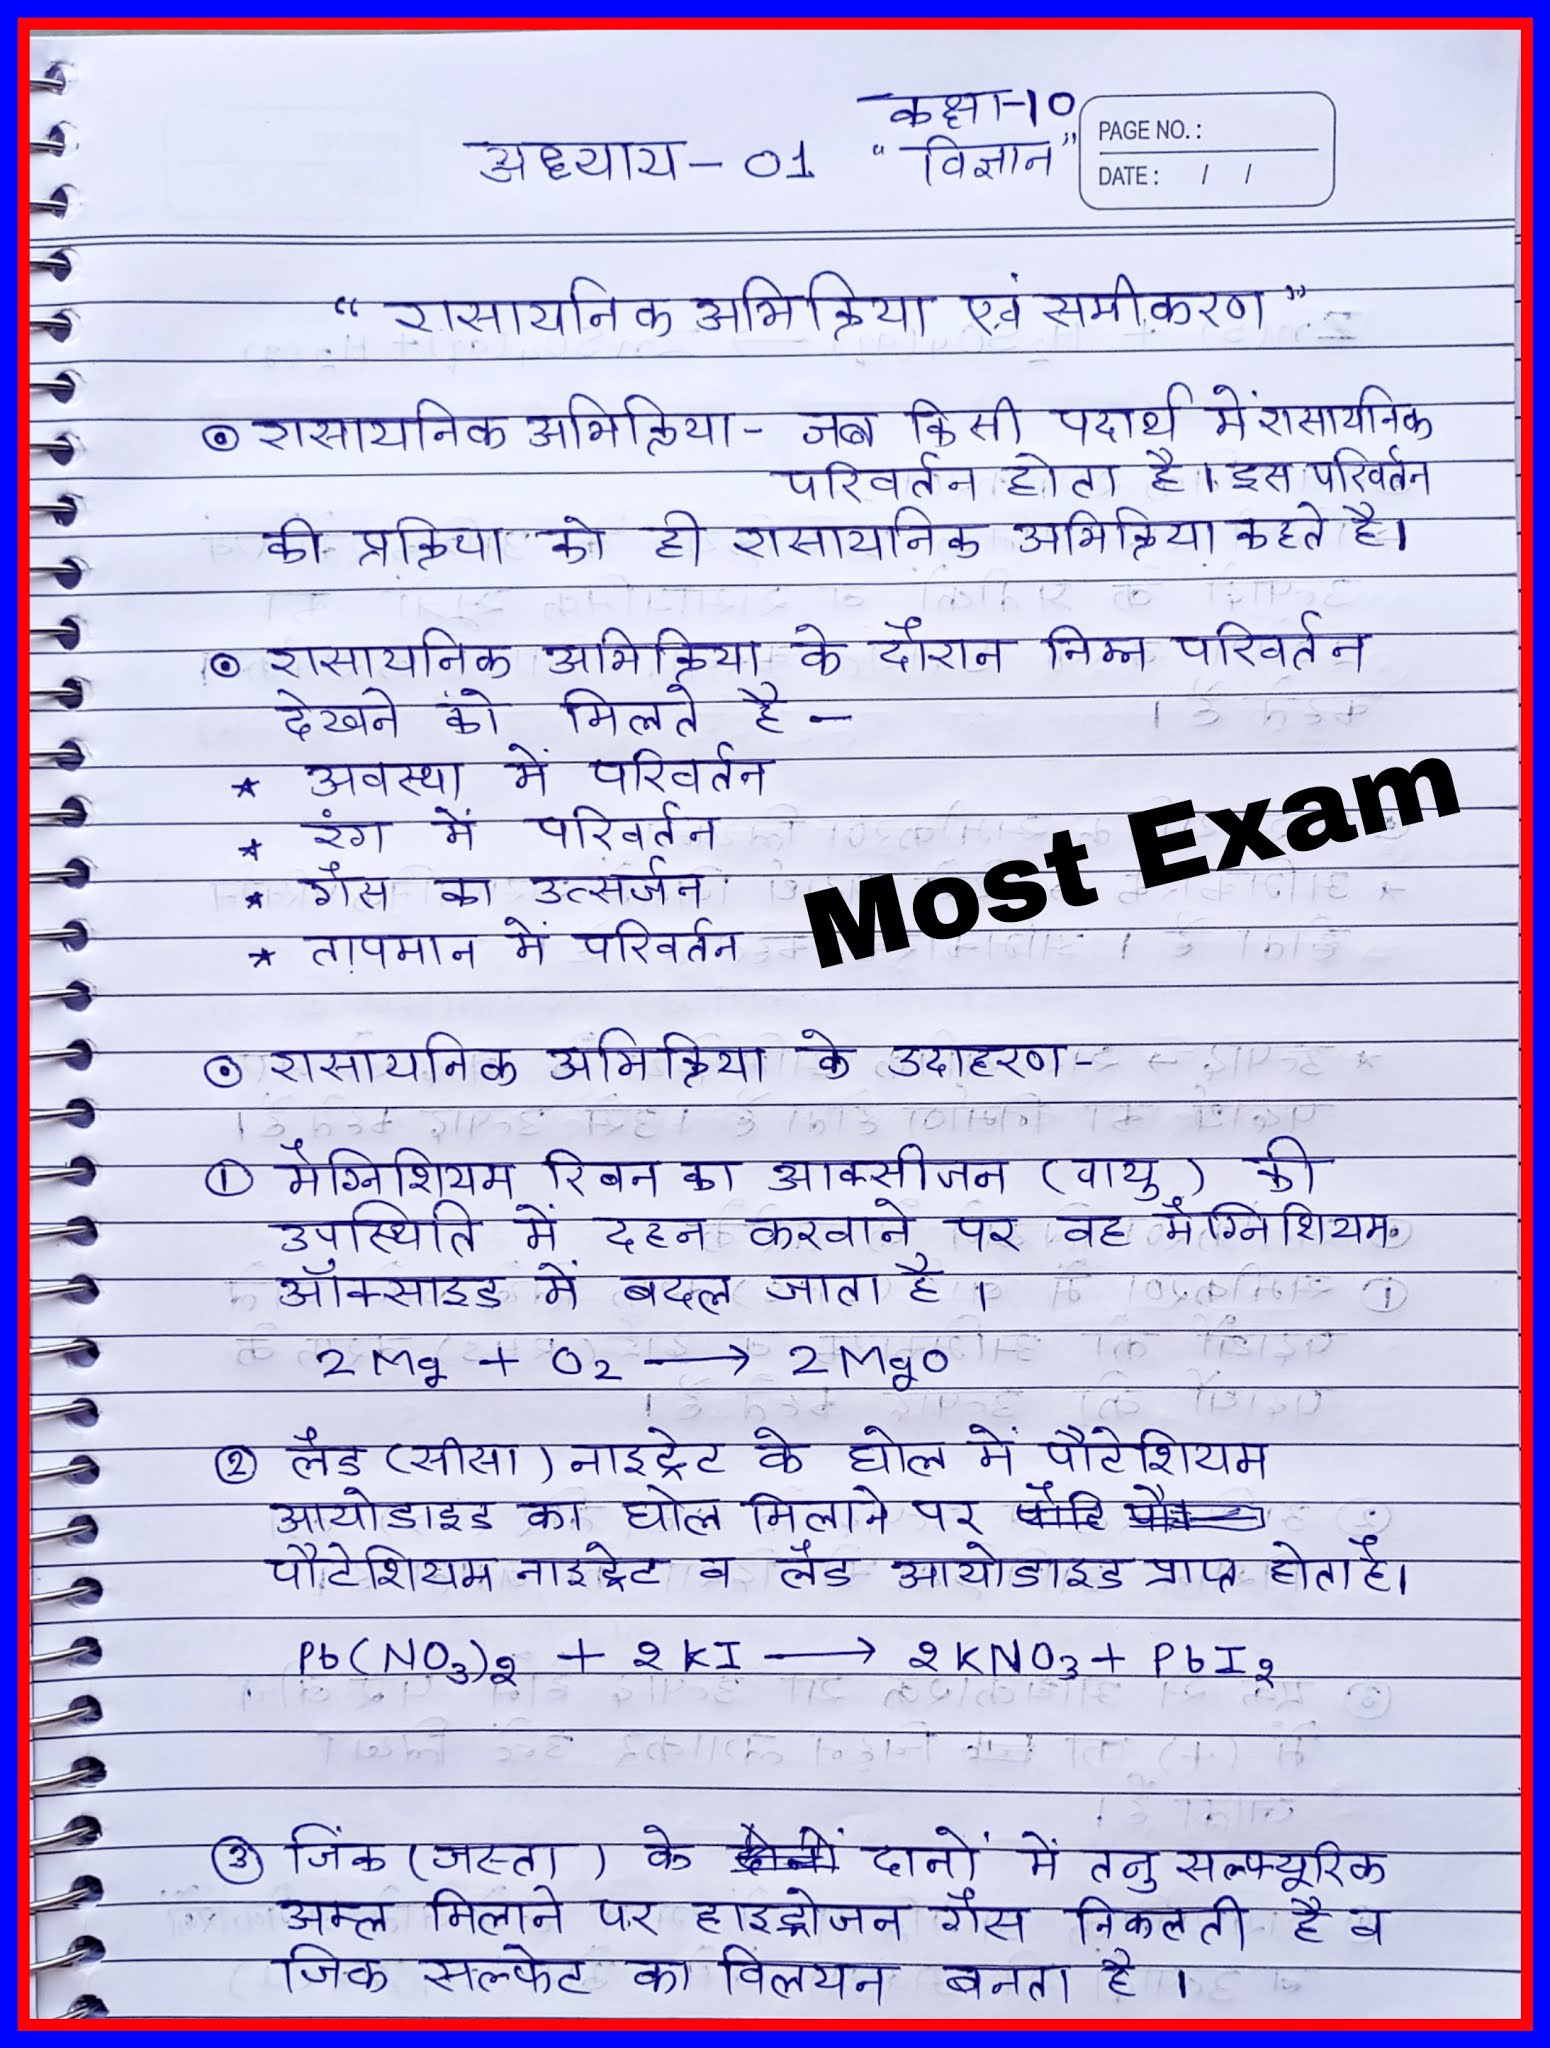 कक्षा-10
अध्याय - 01 "विज्ञान"
PAGE NO.:
DATE: / /
"रासायनिक अभिक्रिया एवं समीकरण"
रासायनिक अभिक्रिया - जब किसी पदार्थ में रासायनिक
परिवर्तन होता है। इस परिवर्तन
की प्रक्रिया को ही रासायनिक अभिक्रिया कहते है।
रासायनिक अभिक्रिया के दौरान निम्न परिवर्तन
देखने को मिलते है -
* अवस्था में परिवर्तन
* रंग में परिवर्तन
* गैस का उत्सर्जन
* तापमान में परिवर्तन
Most Exam
रासायनिक अभिक्रिया के उदाहरण-
① मैग्निशियम रिबन का आक्सीजन (वायु) की
उपस्थिति में दहन करवाने पर वह मैग्निशियम
ऑक्साइड में बदल जाता है ।
2Mg + O₂ ⟶ 2MgO
② लैड (सीसा) नाइट्रेट के घोल में पौटेशियम
आयोडाइड का घोल मिलाने पर
पौटेशियम नाइट्रेट व लैड आयोडाइड प्राप्त होता है।
Pb(NO₃)₂ + 2KI ⟶ 2KNO₃ + PbI₂
③ जिंक (जस्ता) के दानों में तनु सल्फ्यूरिक
अम्ल मिलाने पर हाइड्रोजन गैस निकलती है व
जिंक सल्फेट का विलयन बनता है ।